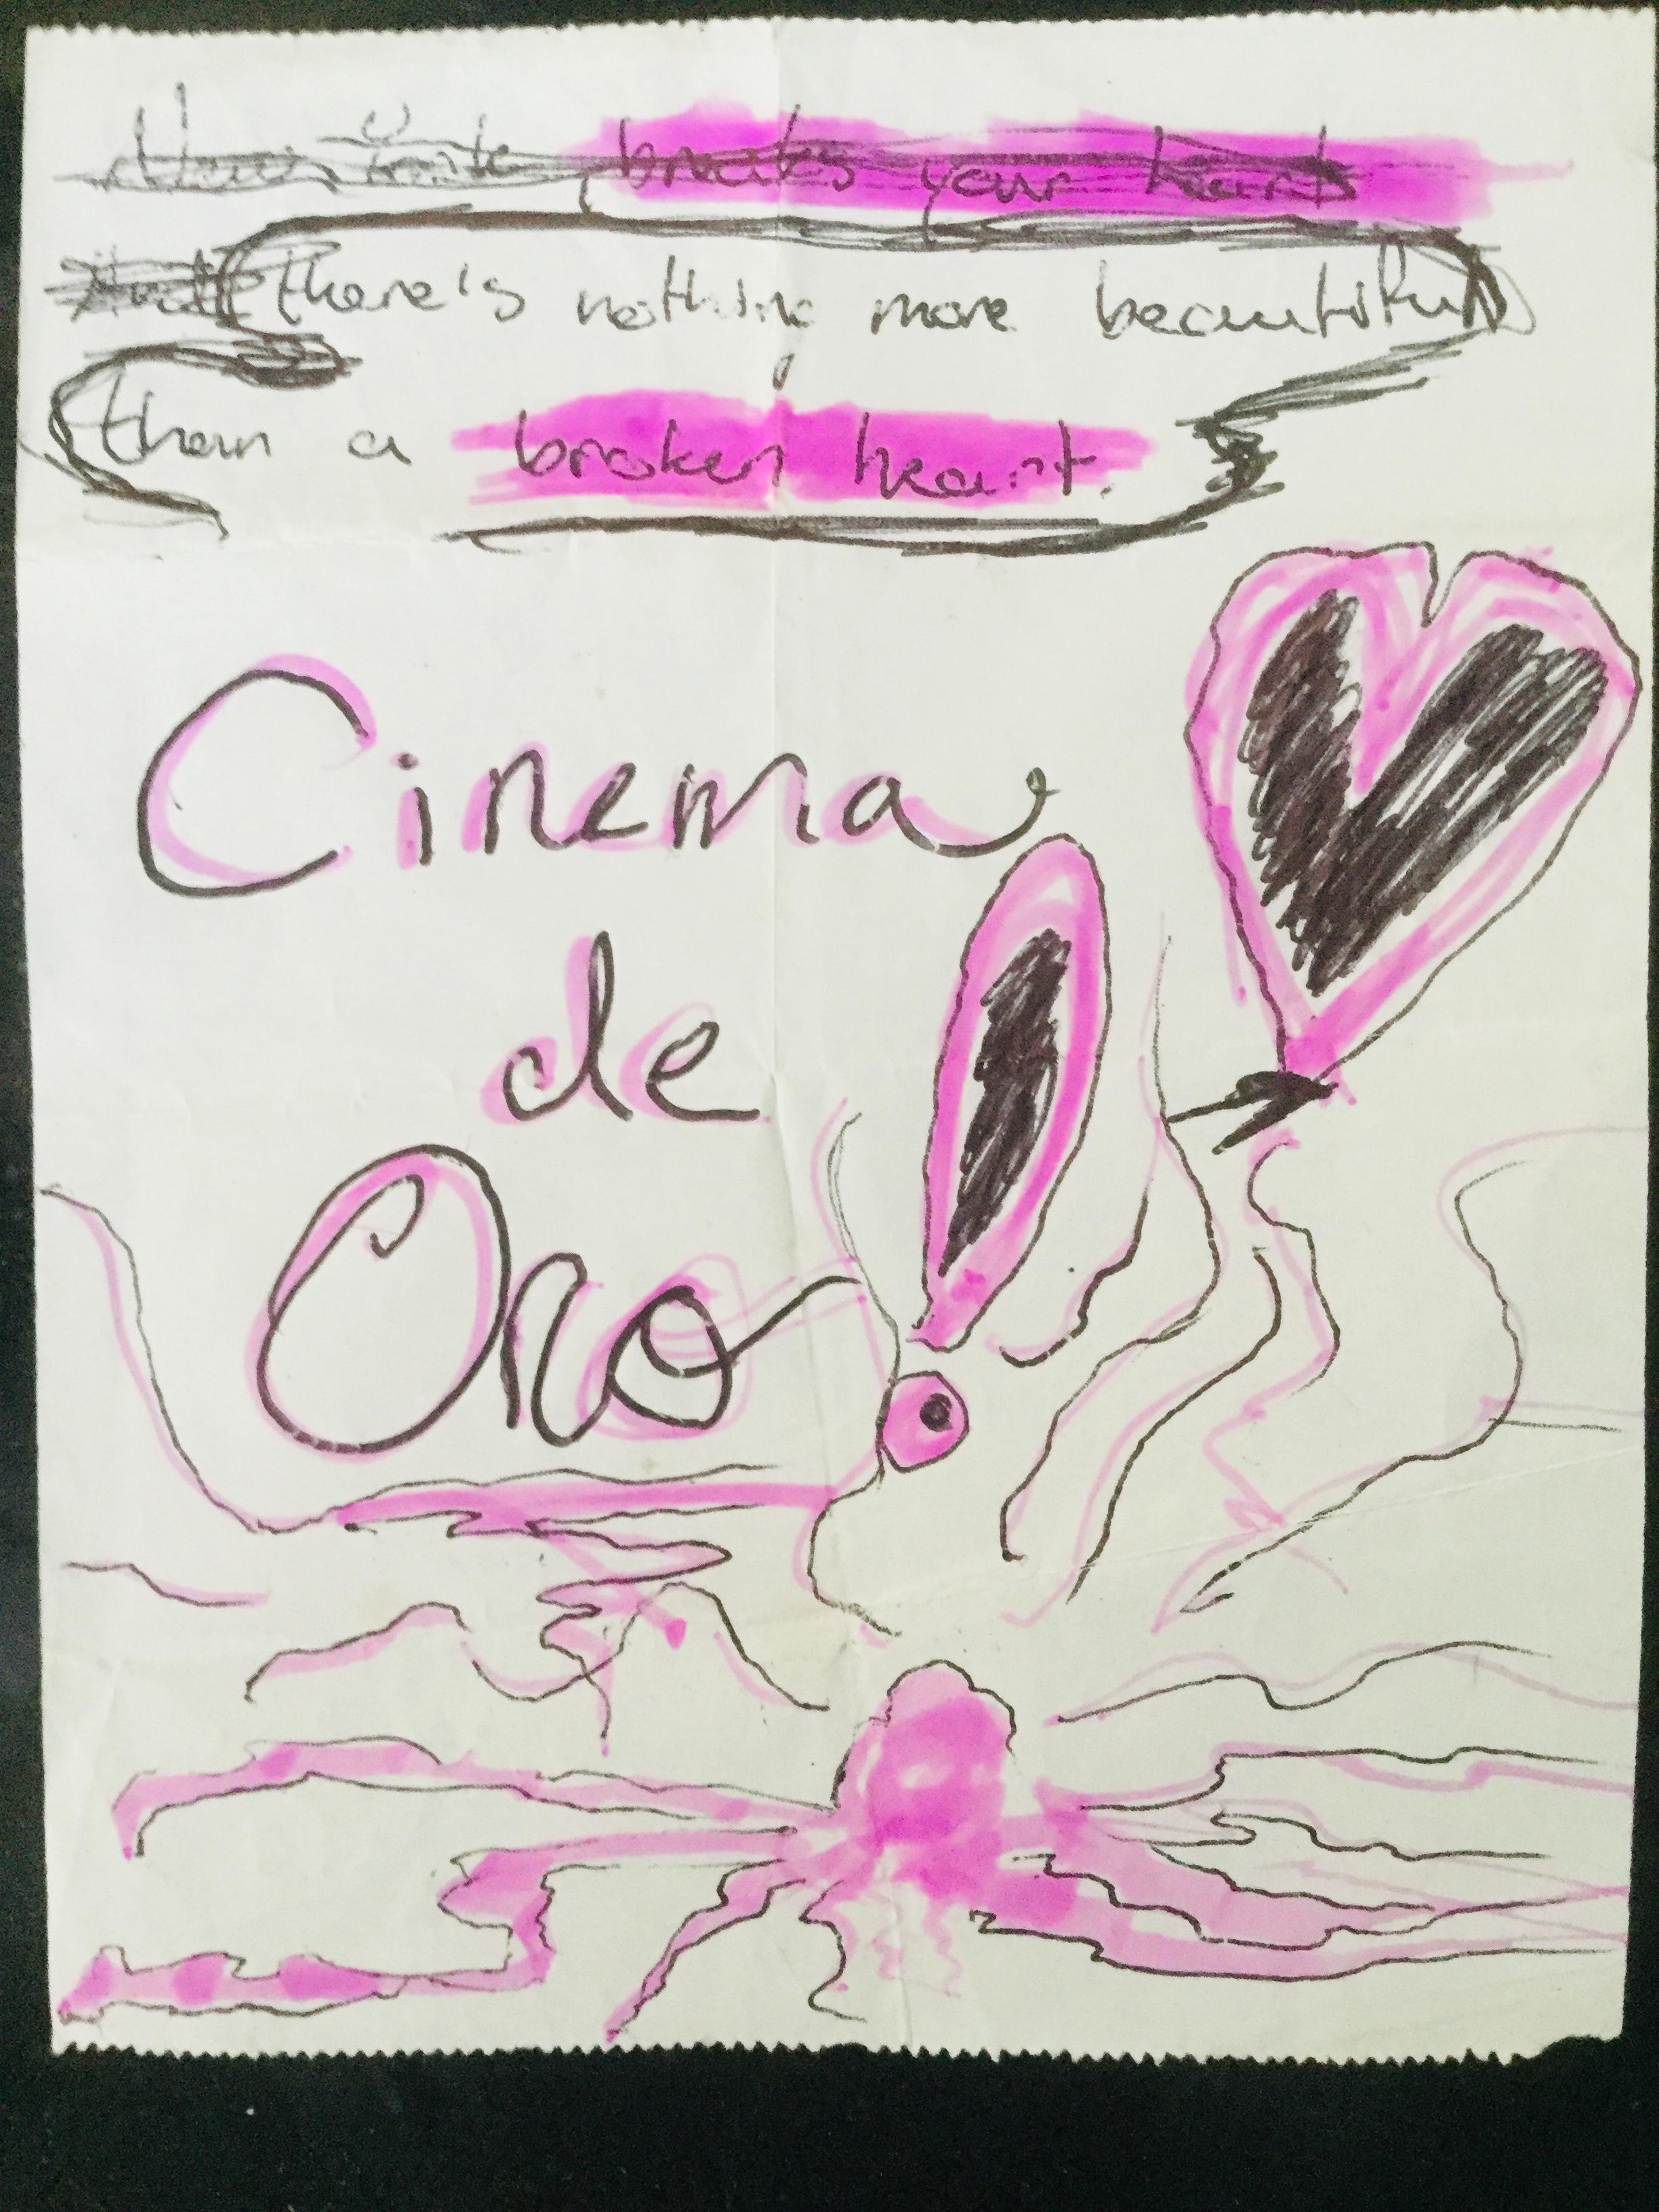 breaks your heart
And there's nothing more beautiful
than a broken heart.
Cinema
de
Oro